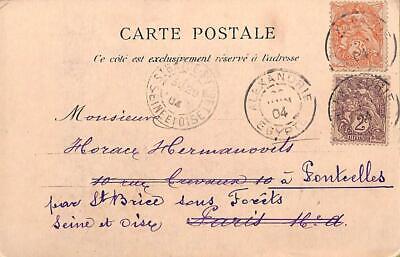 CARTE POSTALE
Ce côté est exclusivement réservé à l'adresse
ALEXANDRIE
04
EGYPT
SEINE ET OISE
04
2
Monsieur
Horace Hermanovits
10 rue 10 à Fontcelles
par St Brice sous Forêts
Paris
Seine et Oise